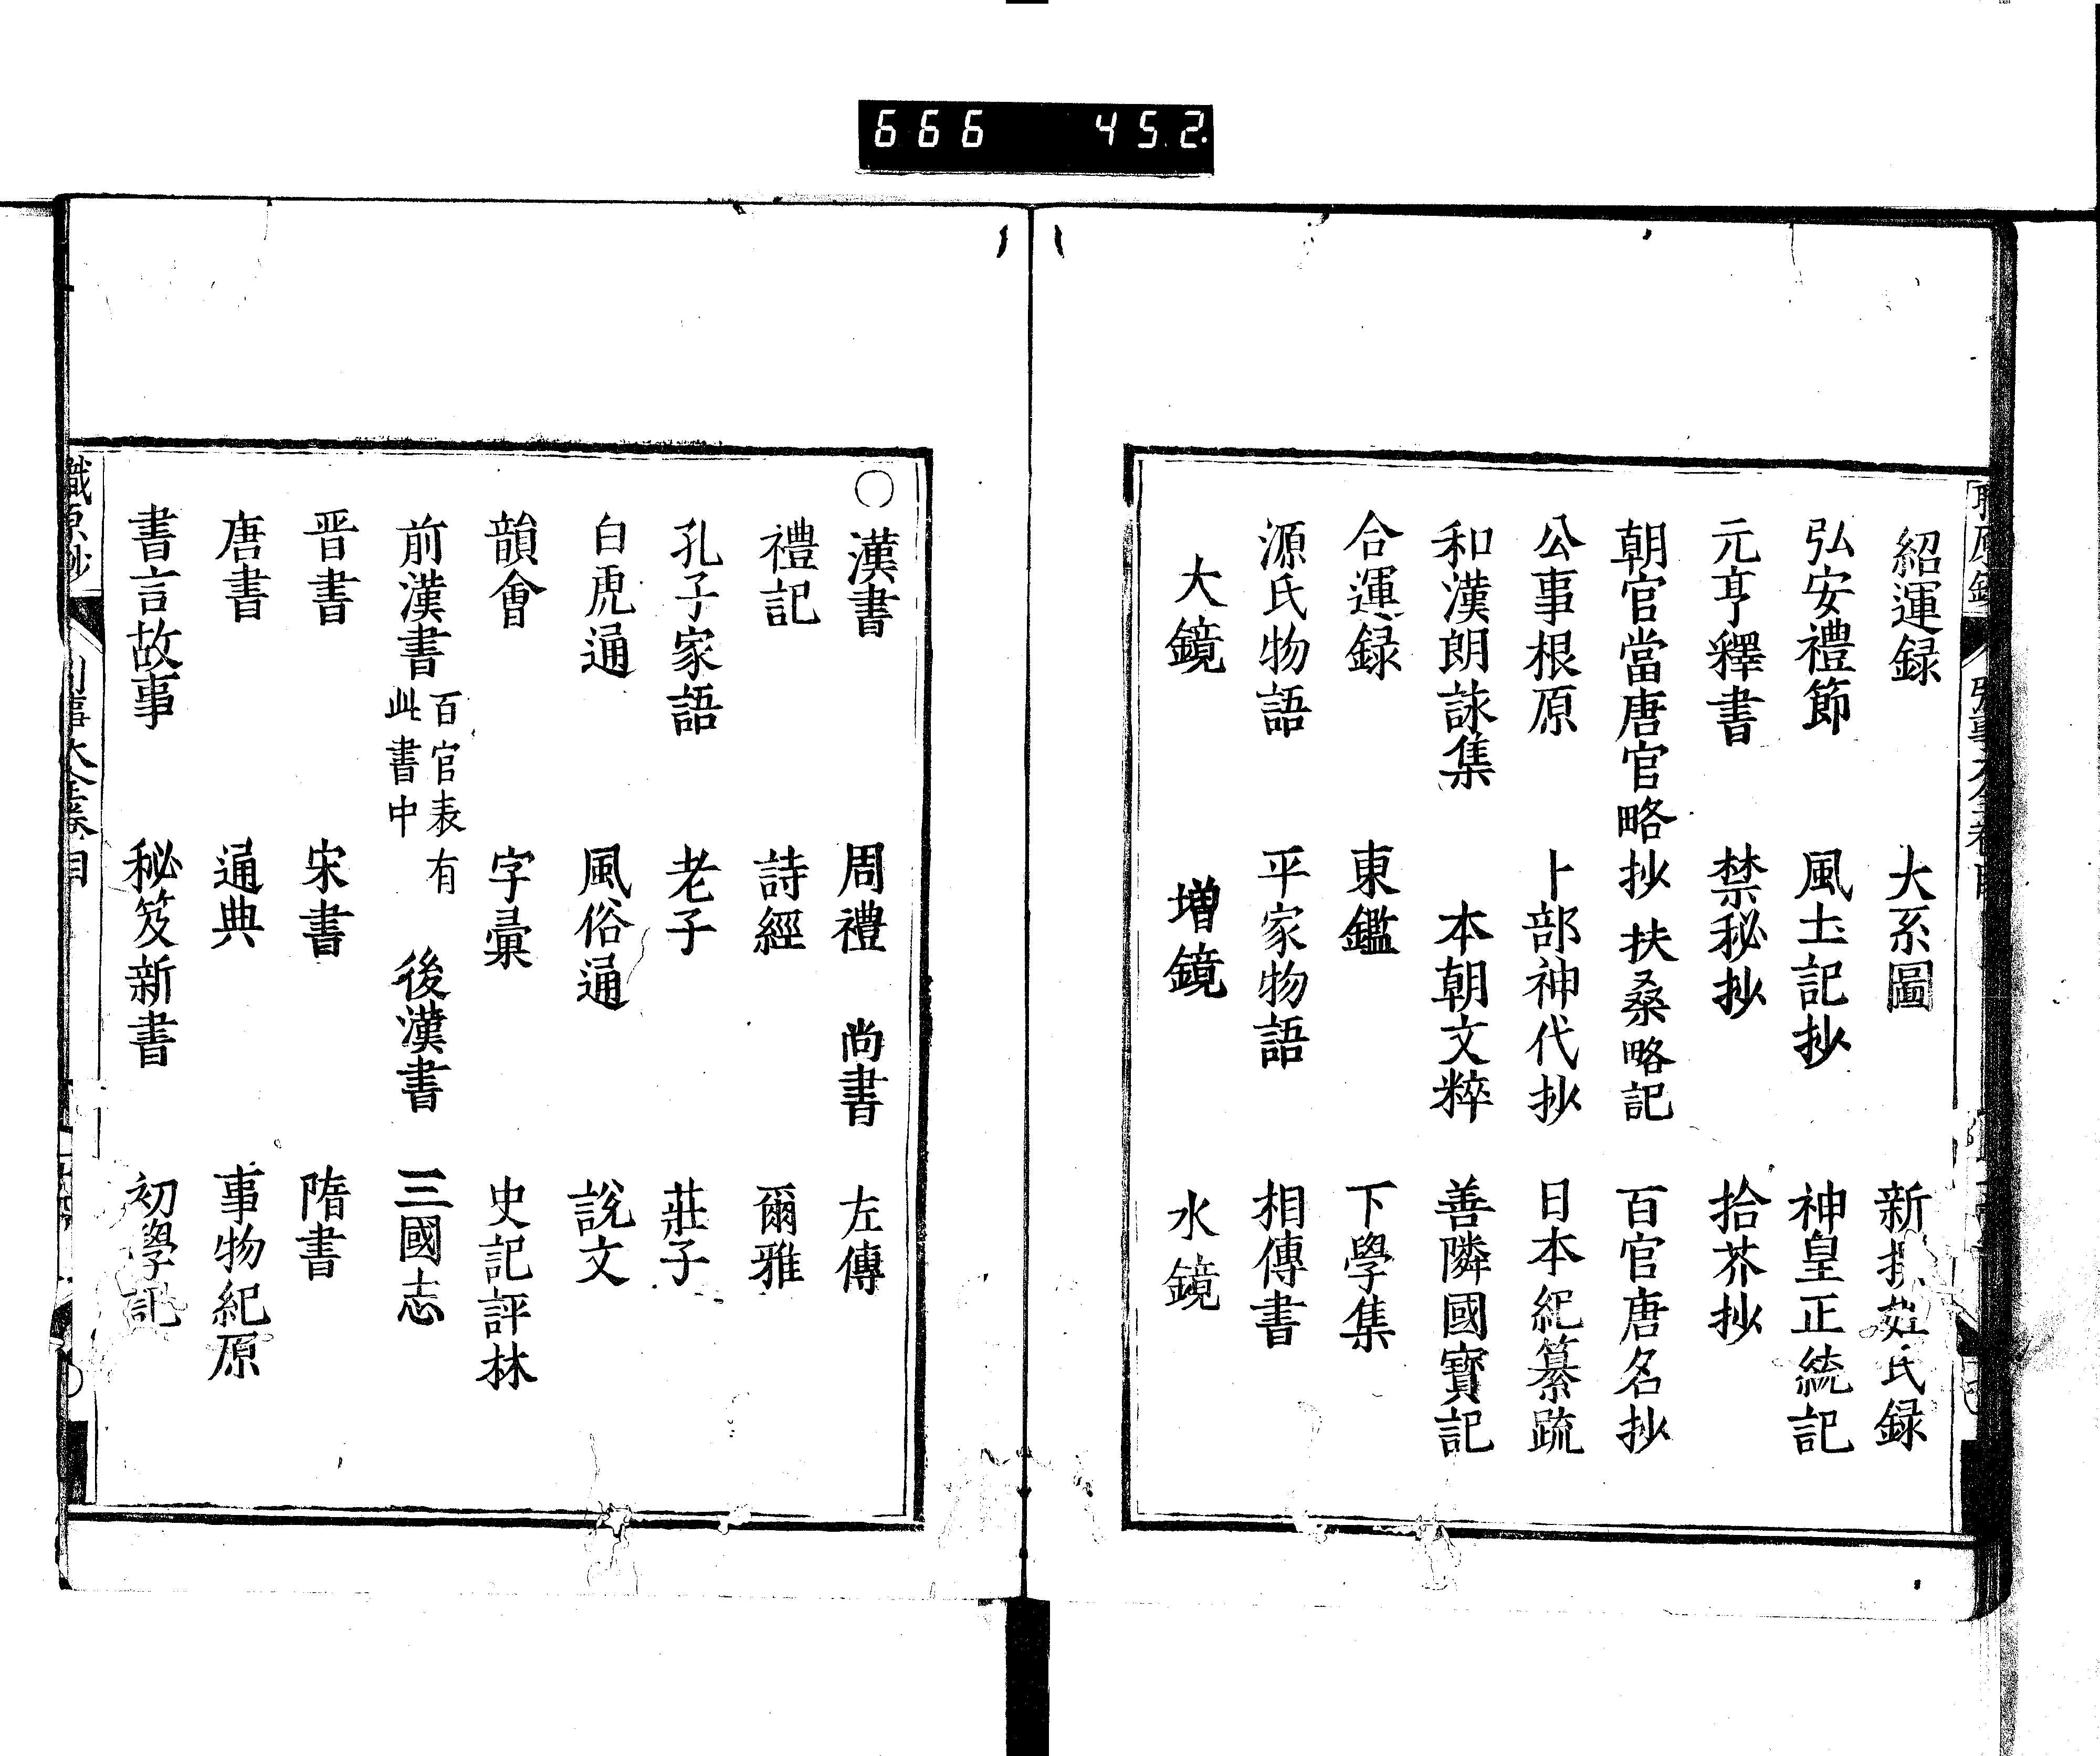 666 452.
紹運録 大系圖 新撰姓氏録
弘安禮節 風土記抄 神皇正統記
元亨釋書 禁秘抄 拾芥抄
朝官當唐官略抄 扶桑略記 百官唐名抄
公事根原 卜部神代抄 日本紀纂疏
和漢朗詠集 本朝文粹 善隣國寳記
合運録 東鑑 下學集
源氏物語 平家物語 相傳書
大鏡 増鏡 水鏡
○漢書 周禮 尚書 左傳
禮記 詩經 爾雅
孔子家語 老子 莊子
白虎通 風俗通 說文
韻會 字彙 史記評林
前漢書 百官表有
此書中
後漢書 三國志
晋書 宋書 隋書
唐書 通典 事物紀原
書言故事 秘笈新書 初學記
職原抄